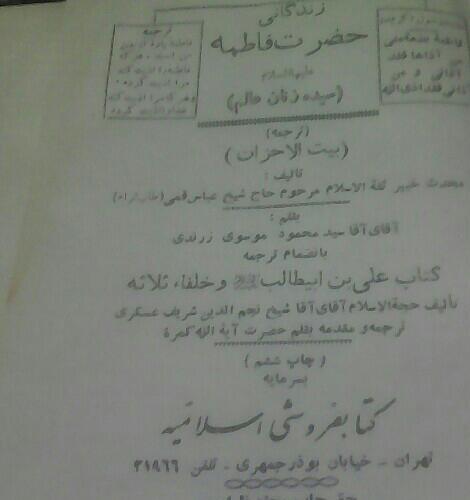 زندگانی
حضرت فاطمه
علیها السلام
(سیده زنان عالم)
ترجمه
فاطمة بضعة منی
من آذاها فقد
آذانی و من
آذانی فقد اذی الله
(ترجمه)
(بیت الاحزان)
تالیف:
محدث خبیر ثقة الاسلام مرحوم حاج شیخ عباس قمی
بقلم:
آقای آقا سید محمود موسوی زرندی
بانضمام ترجمه
کتاب علی بن ابیطالب و خلفاء ثلاثه
تألیف حجة الاسلام آقای آقا شیخ نجم الدین شریف عسکری
ترجمه و مقدمه بقلم حضرت آیة الله کمرهٔ
(چاپ ششم)
بسرمایه
کتابفروشی اسلامیه
تهران - خیابان بوذرجمهری - تلفن ۲۱۹۶۶